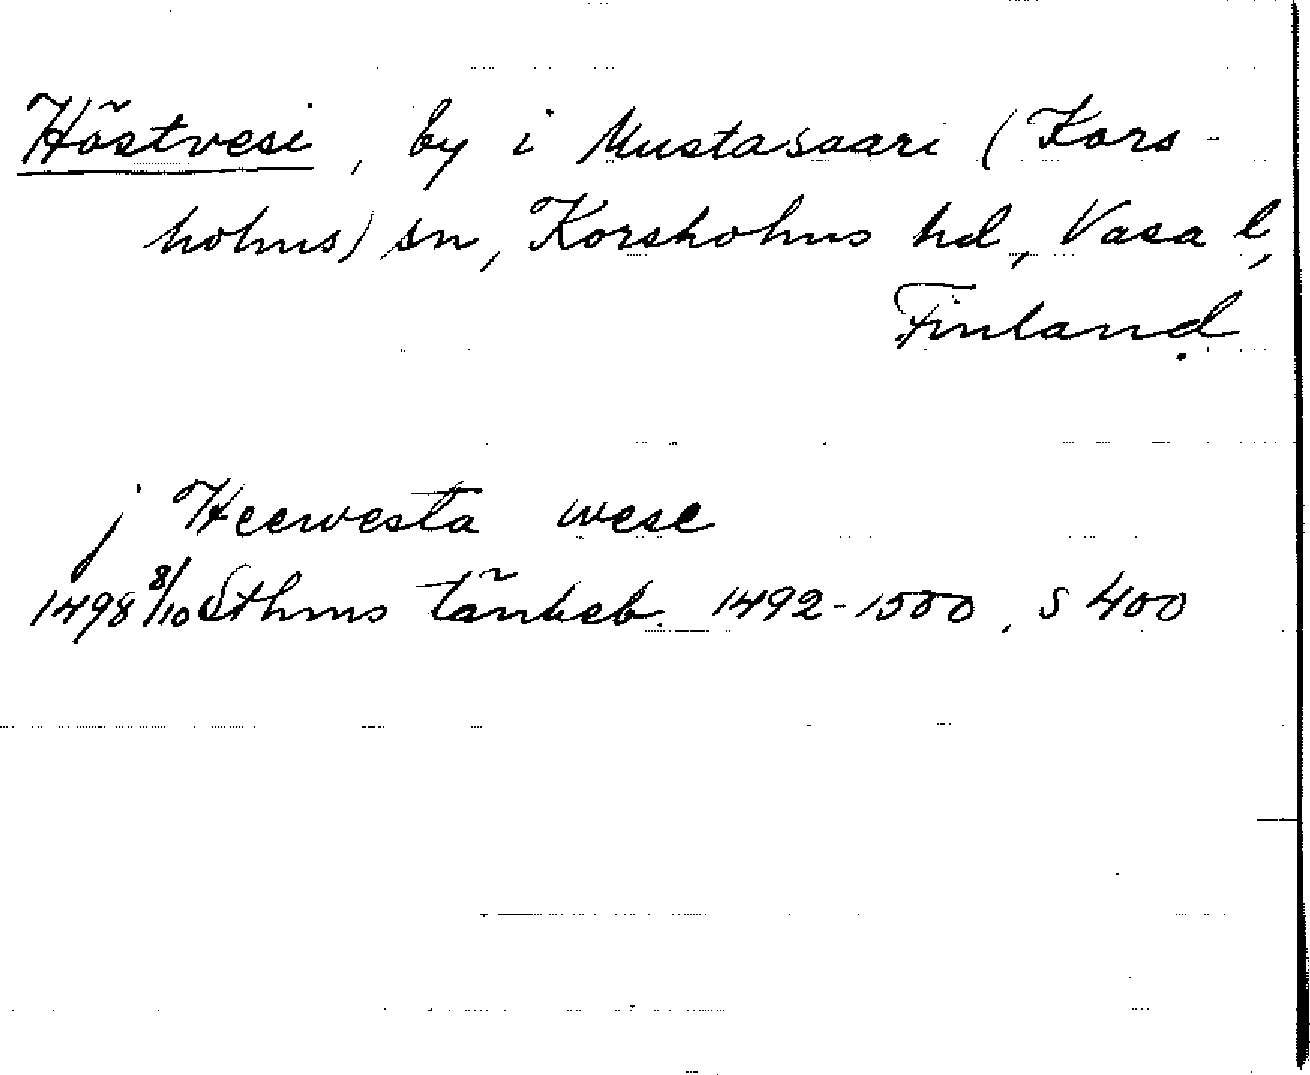 Höstvesi, by i Mustasaari (Kors-
holms) sn, Korsholms hd, Vasa l,
Finland.
j Heervesta wese
1498 8/10 Sthms tänkeb. 1492-1500, s 400